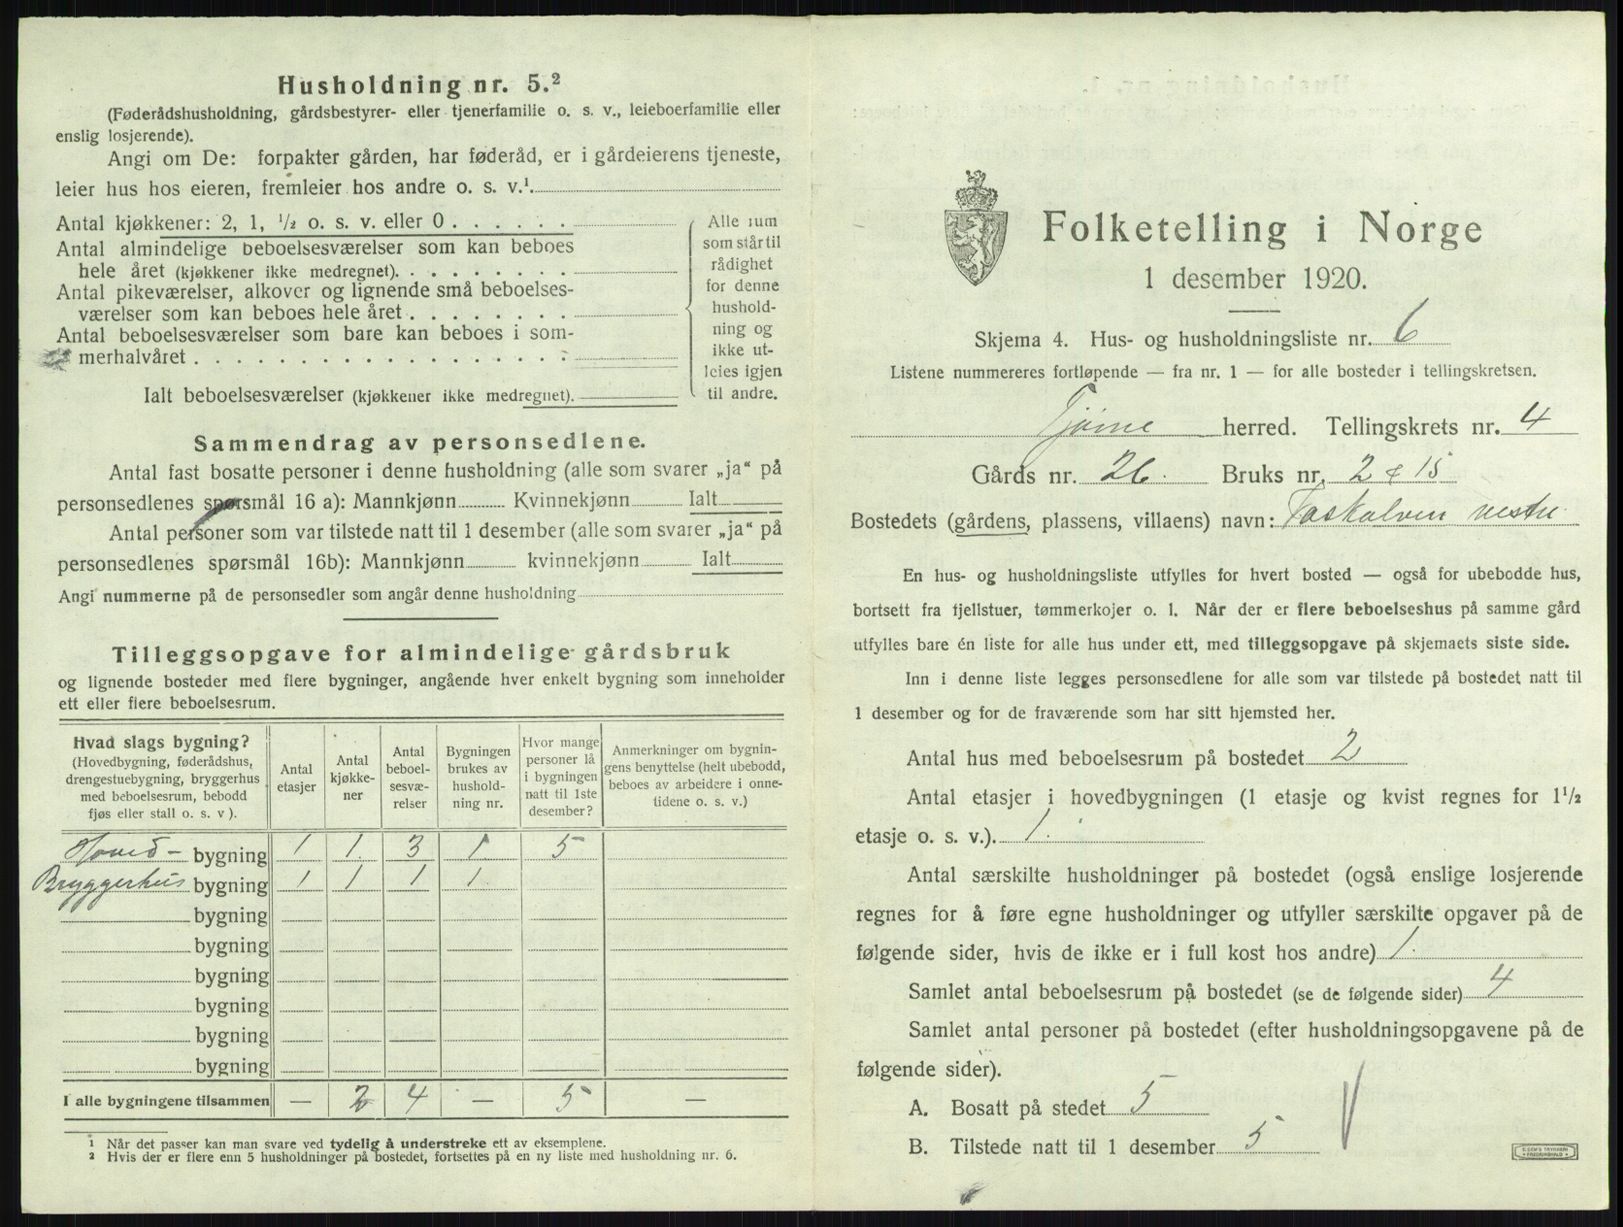 Husholdning nr. 5.²
(Føderådshusholdning, gårdsbestyrer- eller tjenerfamilie o. s. v., leieboerfamilie eller
enslig losjerende).
Angi om De: forpakter gården, har føderåd, er i gårdeierens tjeneste,
leier hus hos eieren, fremleier hos andre o. s. v.¹.
Antal kjøkkener: 2, 1, ½ o. s. v. eller 0 . . . . . .
Antal almindelige beboelsesværelser som kan beboes
hele året (kjøkkener ikke medregnet). . . . . . . . .
Antal pikeværelser, alkover og lignende små beboelses-
værelser som kan beboes hele året . . . . . . . .
Antal beboelsesværelser som bare kan beboes i som-
merhalvåret . . . . . . . . . . . . . . . . . .
Ialt beboelsesværelser (kjøkkener ikke medregnet).
Alle rum
som står til
rådighet
for denne
hushold-
ning og
ikke ut-
leies igjen
til andre.
Sammendrag av personsedlene.
Antal fast bosatte personer i denne husholdning (alle som svarer „ja“ på
personsedlenes spørsmål 16 a): Mannkjønn Kvinnekjønn Ialt
Antal personer som var tilstede natt til 1 desember (alle som svarer „ja“ på
personsedlenes spørsmål 16b): Mannkjønn kvinnekjønn Ialt
Angi nummerne på de personsedler som angår denne husholdning
Tilleggsopgave for almindelige gårdsbruk
og lignende bosteder med flere bygninger, angående hver enkelt bygning som inneholder
ett eller flere beboelsesrum.
Hvad slags bygning?
(Hovedbygning, føderådshus,
drengestuebygning, bryggerhus
med beboelsesrum, bebodd
fjøs eller stall o. s. v ).
Antal
etasjer
Antal
kjøkke-
ner
Antal
beboel-
sesvæ-
relser
Bygningen
brukes av
hushold-
ning nr.
Hvor mange
personer lå
i bygningen
natt til 1ste
desember?
Anmerkninger om bygnin-
gens benyttelse (helt ubebodd,
beboes av arbeidere i onne-
tidene o. s. v.)
Hoved- bygning 1 1. 3 1. 5
Bryggerhus bygning 1 1 1 1.
bygning
bygning
bygning
bygning
bygning
bygning
I alle bygningene tilsammen — 2 4 — 5 —
¹ Når det passer kan man svare ved tydelig å understreke ett av eksemplene.
² Hvis der er flere enn 5 husholdninger på bostedet, fortsettes på en ny liste med husholdning nr. 6.
Folketelling i Norge
1 desember 1920.
Skjema 4. Hus- og husholdningsliste nr. 6
Listene nummereres fortløpende — fra nr. 1 — for alle bosteder i tellingskretsen.
Tjøme herred. Tellingskrets nr. 4
Gårds nr. 26. Bruks nr. 2 & 15
Bostedets (gårdens, plassens, villaens) navn: Toskalven vestre
En hus- og husholdningsliste utfylles for hvert bosted — også for ubebodde hus,
bortsett fra fjellstuer, tømmerkojer o. l. Når der er flere beboelseshus på samme gård
utfylles bare én liste for alle hus under ett, med tilleggsopgave på skjemaets siste side.
Inn i denne liste legges personsedlene for alle som var tilstede på bostedet natt til
1 desember og for de fraværende som har sitt hjemsted her.
Antal hus med beboelsesrum på bostedet 2
Antal etasjer i hovedbygningen (1 etasje og kvist regnes for 1½
etasje o. s. v.). 1.
Antal særskilte husholdninger på bostedet (også enslige losjerende
regnes for å føre egne husholdninger og utfyller særskilte opgaver på de
følgende sider, hvis de ikke er i full kost hos andre) 1.
Samlet antal beboelsesrum på bostedet (se de følgende sider) 4
Samlet antal personer på bostedet (efter husholdningsopgavene på de
følgende sider).
A. Bosatt på stedet 5
B. Tilstede natt til 1 desember 5